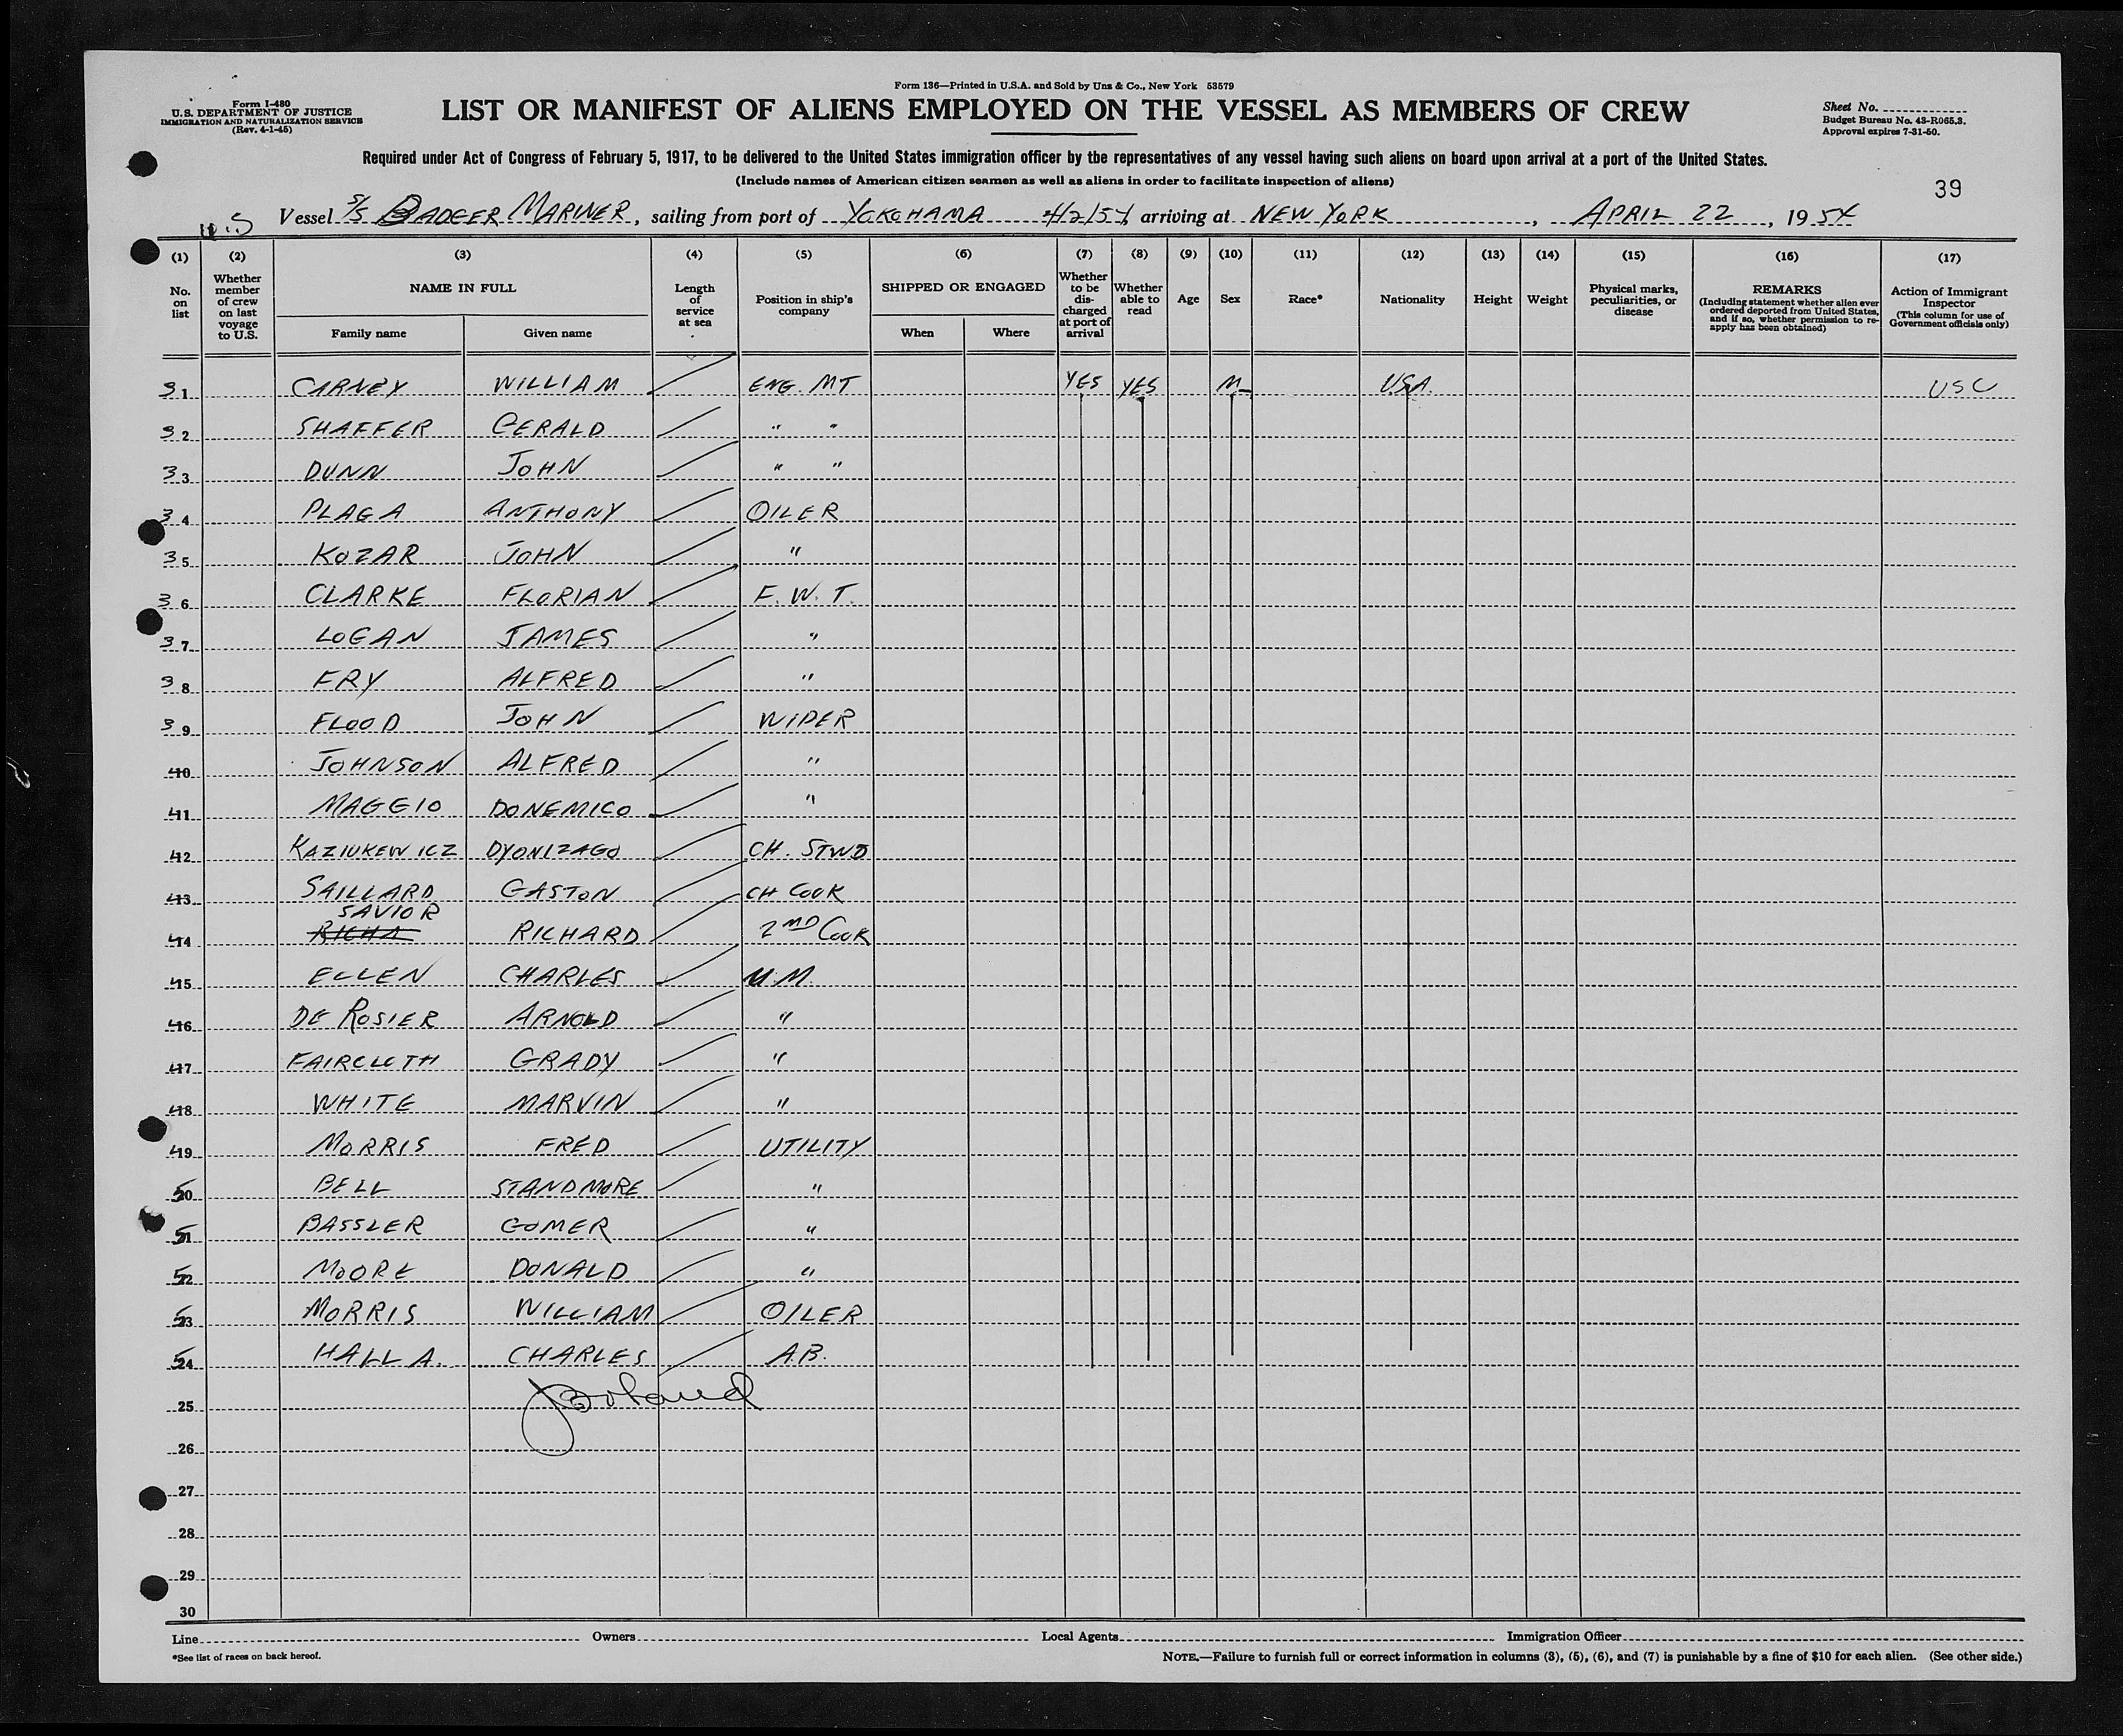 Form 136—Printed in U.S.A. and Sold by Unz & Co., New York 53579
Form I-480
U.S. DEPARTMENT OF JUSTICE
IMMIGRATION AND NATURALIZATION SERVICE
(Rev. 4-1-45)
LIST OR MANIFEST OF ALIENS EMPLOYED ON THE VESSEL AS MEMBERS OF CREW
Sheet No.
Budget Bureau No. 43-R065.3.
Approval expires 7-31-50.
Required under Act of Congress of February 5, 1917, to be delivered to the United States immigration officer by the representatives of any vessel having such aliens on board upon arrival at a port of the United States.
(Include names of American citizen seamen as well as aliens in order to facilitate inspection of aliens)
39
Vessel S/S BADGER MARINER, sailing from port of YOKOHAMA 4/2/54, arriving at NEW YORK, APRIL 22, 1954
(1) (2) (3) (4) (5) (6) (7) (8) (9) (10) (11) (12) (13) (14) (15) (16) (17)
No. on list
Whether member of crew on last voyage to U.S.
NAME IN FULL
Family name
Given name
Length of service at sea
Position in ship's company
SHIPPED OR ENGAGED
When
Where
Whether to be discharged at port of arrival
Whether able to read
Age
Sex
Race*
Nationality
Height
Weight
Physical marks, peculiarities, or disease
REMARKS
(Including statement whether alien ever ordered deported from United States, and if so, whether permission to reapply has been obtained)
Action of Immigrant Inspector
(This column for use of Government officials only)
31 CARNEY WILLIAM ENG. MT YES YES M USA USC
32 SHAFFER GERALD " "
33 DUNN JOHN " "
34 PLAGA ANTHONY OILER
35 KOZAR JOHN "
36 CLARKE FLORIAN F.W.T.
37 LOGAN JAMES "
38 FRY ALFRED "
39 FLOOD JOHN WIPER
40 JOHNSON ALFRED "
41 MAGGIO DONEMICO "
42 KAZIUKEWICZ DYONIZAGO CH. STWD
43 SAILLARD GASTON CH COOK
SAVIOR
44 RICHA RICHARD 2ND COOK
45 ELLEN CHARLES U.M.
46 DE ROSIER ARNOLD "
47 FAIRCLOTH GRADY "
48 WHITE MARVIN "
49 MORRIS FRED UTILITY
50 BELL STANDMORE "
51 BASSLER GOMER "
52 MOORE DONALD "
53 MORRIS WILLIAM OILER
54 HALL A. CHARLES A.B.
25
26
27
28
29
30
Line Owners Local Agents Immigration Officer
*See list of races on back hereof.
NOTE.—Failure to furnish full or correct information in columns (3), (5), (6), and (7) is punishable by a fine of $10 for each alien. (See other side.)